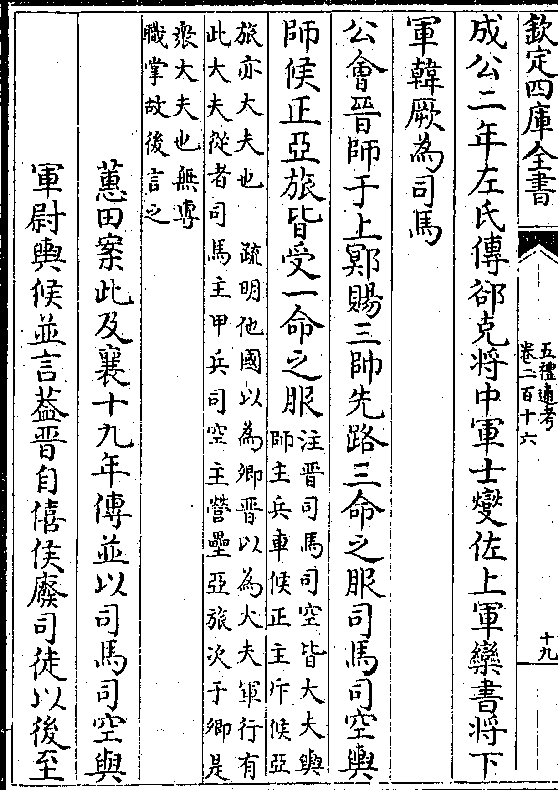 欽定四庫全書
五禮通考
卷二百十六
十九
成公二年左氏傳郤克將中軍士燮佐上軍欒書將下
軍韓厥為司馬
公會晉師于上鄍賜三帥先路三命之服司馬司空輿
師候正亞旅皆受一命之服
注晉司馬司空皆大夫輿
師主兵車候正主斥候亞
旅亦大夫也　疏明他國以為卿晉以為大夫軍行有
此大夫從者司馬主甲兵司空主營壘亞旅次于卿是
衆大夫也無專
職掌故後言之
蕙田案此及襄十九年傳並以司馬司空與
軍尉輿候並言葢晉自僖侯廢司徒以後至